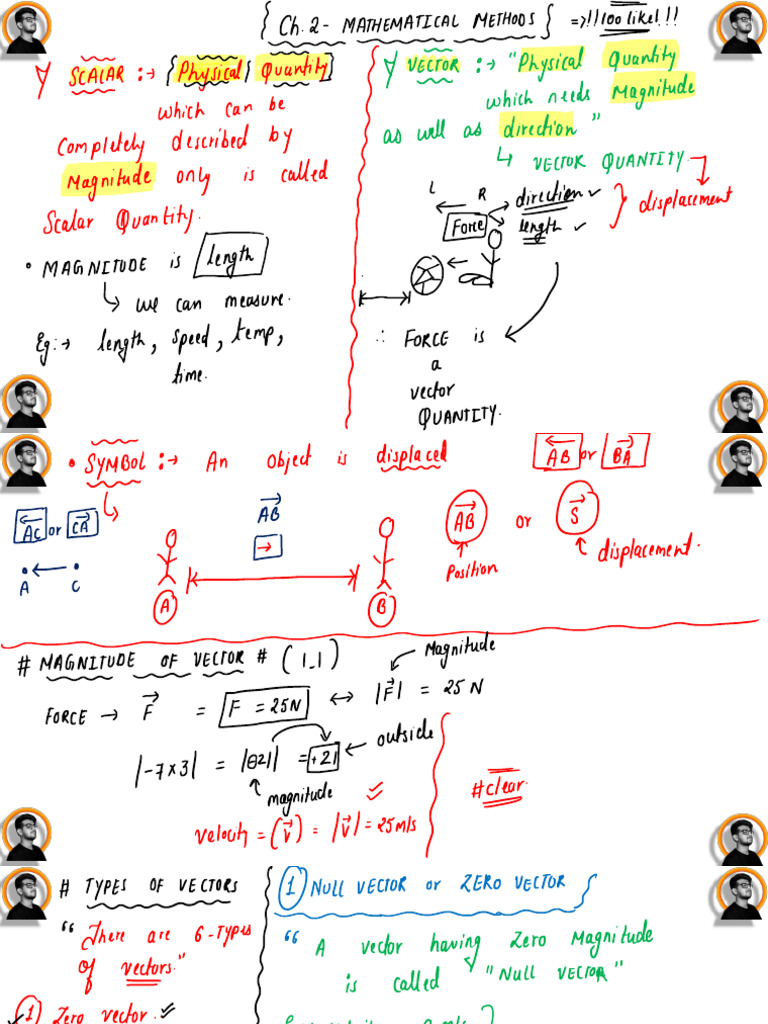 Ch. 2 - MATHEMATICAL METHODS => !! 100 like! !!
SCALAR :→ Physical Quantity
which can be
completely described by
Magnitude only is called
Scalar Quantity.
• MAGNITUDE is length
↳ we can measure.
Eg :→ length, speed, temp,
time.
VECTOR :→ "Physical Quantity
which needs Magnitude
as well as direction"
↳ VECTOR QUANTITY
L R direction ✓
Force length ✓
displacement
∴ FORCE is
a
vector
QUANTITY.
• SYMBOL :→ An object is displaced
←AB or →BA
←AC or →CA
A C
→AB
→
A B
→AB or →S
Position
displacement.
# MAGNITUDE OF VECTOR # (|_|)
Magnitude
FORCE → →F = F = 25N ↔ |→F| = 25 N
|-7×3| = |-21| = +21 ← outside
magnitude
velocity = (→V) = |→V| = 25 m/s
#clear.
# TYPES OF VECTORS
"There are 6-Types
of vectors."
1 Zero vector.
1 NULL VECTOR or ZERO VECTOR
"A vector having Zero Magnitude
is called "NULL VECTOR"